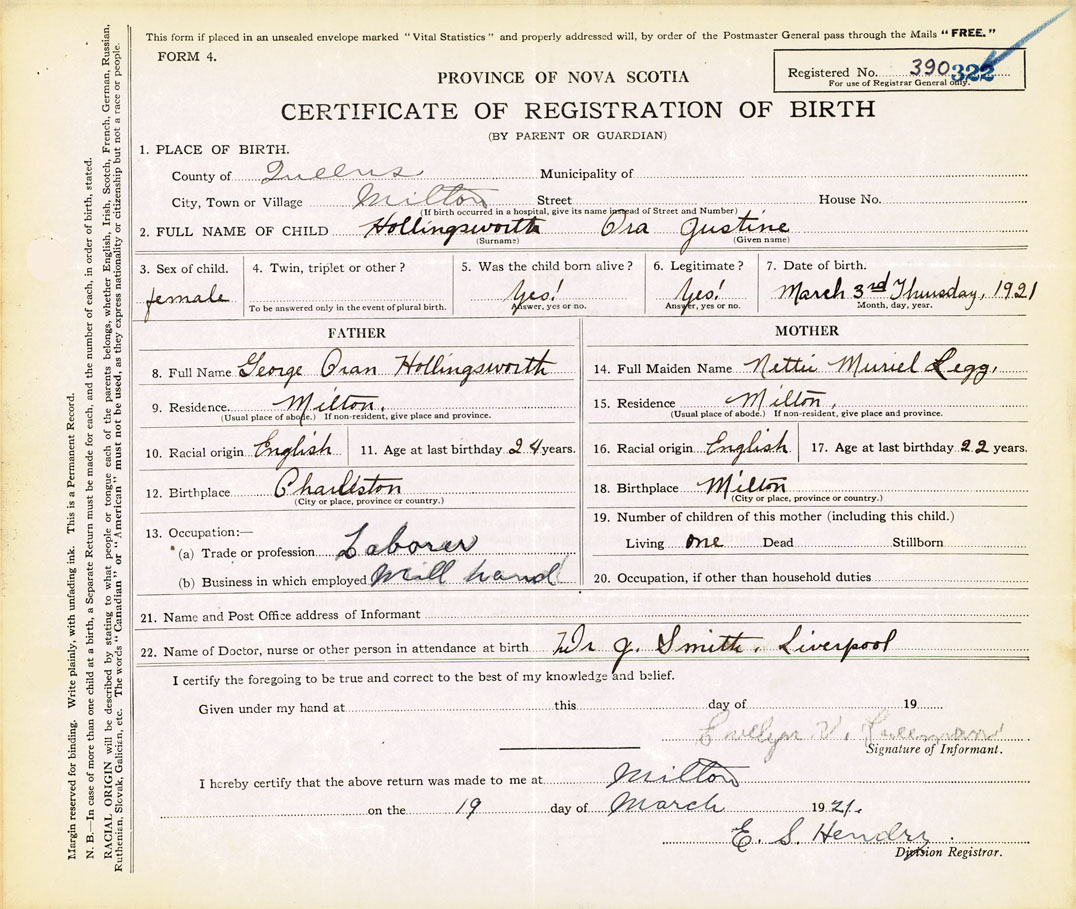 This form if placed in an unsealed envelope marked "Vital Statistics" and properly addressed will, by order of the Postmaster General pass through the Mails "FREE."
FORM 4.
Registered No. 390 322
For use of Registrar General only.
PROVINCE OF NOVA SCOTIA
CERTIFICATE OF REGISTRATION OF BIRTH
(BY PARENT OR GUARDIAN)
1. PLACE OF BIRTH.
County of Queens Municipality of
City, Town or Village Milton Street House No.
(If birth occurred in a hospital, give its name instead of Street and Number)
2. FULL NAME OF CHILD Hollingsworth Ora Justine
(Surname) (Given name)
3. Sex of child. 4. Twin, triplet or other? 5. Was the child born alive? 6. Legitimate? 7. Date of birth.
female Yes! Yes! March 3rd Thursday, 1921
To be answered only in the event of plural birth. Answer, yes or no. Answer, yes or no. Month, day, year.
FATHER
8. Full Name George Oran Hollingsworth
9. Residence. Milton.
(Usual place of abode.) If non-resident, give place and province.
10. Racial origin English 11. Age at last birthday 24 years.
12. Birthplace Charleston
(City or place, province or country.)
13. Occupation:—
(a) Trade or profession Laborer
(b) Business in which employed Mill hand
MOTHER
14. Full Maiden Name Nettie Muriel Legg.
15. Residence Milton.
(Usual place of abode.) If non-resident, give place and province.
16. Racial origin English 17. Age at last birthday 22 years.
18. Birthplace Milton
(City or place, province or country.)
19. Number of children of this mother (including this child.)
Living one Dead Stillborn
20. Occupation, if other than household duties
21. Name and Post Office address of Informant
22. Name of Doctor, nurse or other person in attendance at birth Dr J. Smith. Liverpool
I certify the foregoing to be true and correct to the best of my knowledge and belief.
Given under my hand at this day of 19
Evelyn V.
Signature of Informant.
I hereby certify that the above return was made to me at Milton
on the 19 day of March 1921.
E. S. Hendry.
Division Registrar.
Margin reserved for binding. Write plainly, with unfading ink. This is a Permanent Record.
N. B.—In case of more than one child at a birth, a Separate Return must be made for each, and the number of each, in order of birth, stated.
RACIAL ORIGIN will be described by stating to what people or tongue each of the parents belongs, whether English, Irish, Scotch, French, German, Russian,
Ruthenian, Slovak, Galician, etc. The words "Canadian" or "American" must not be used, as they express nationality or citizenship but not a race or people.